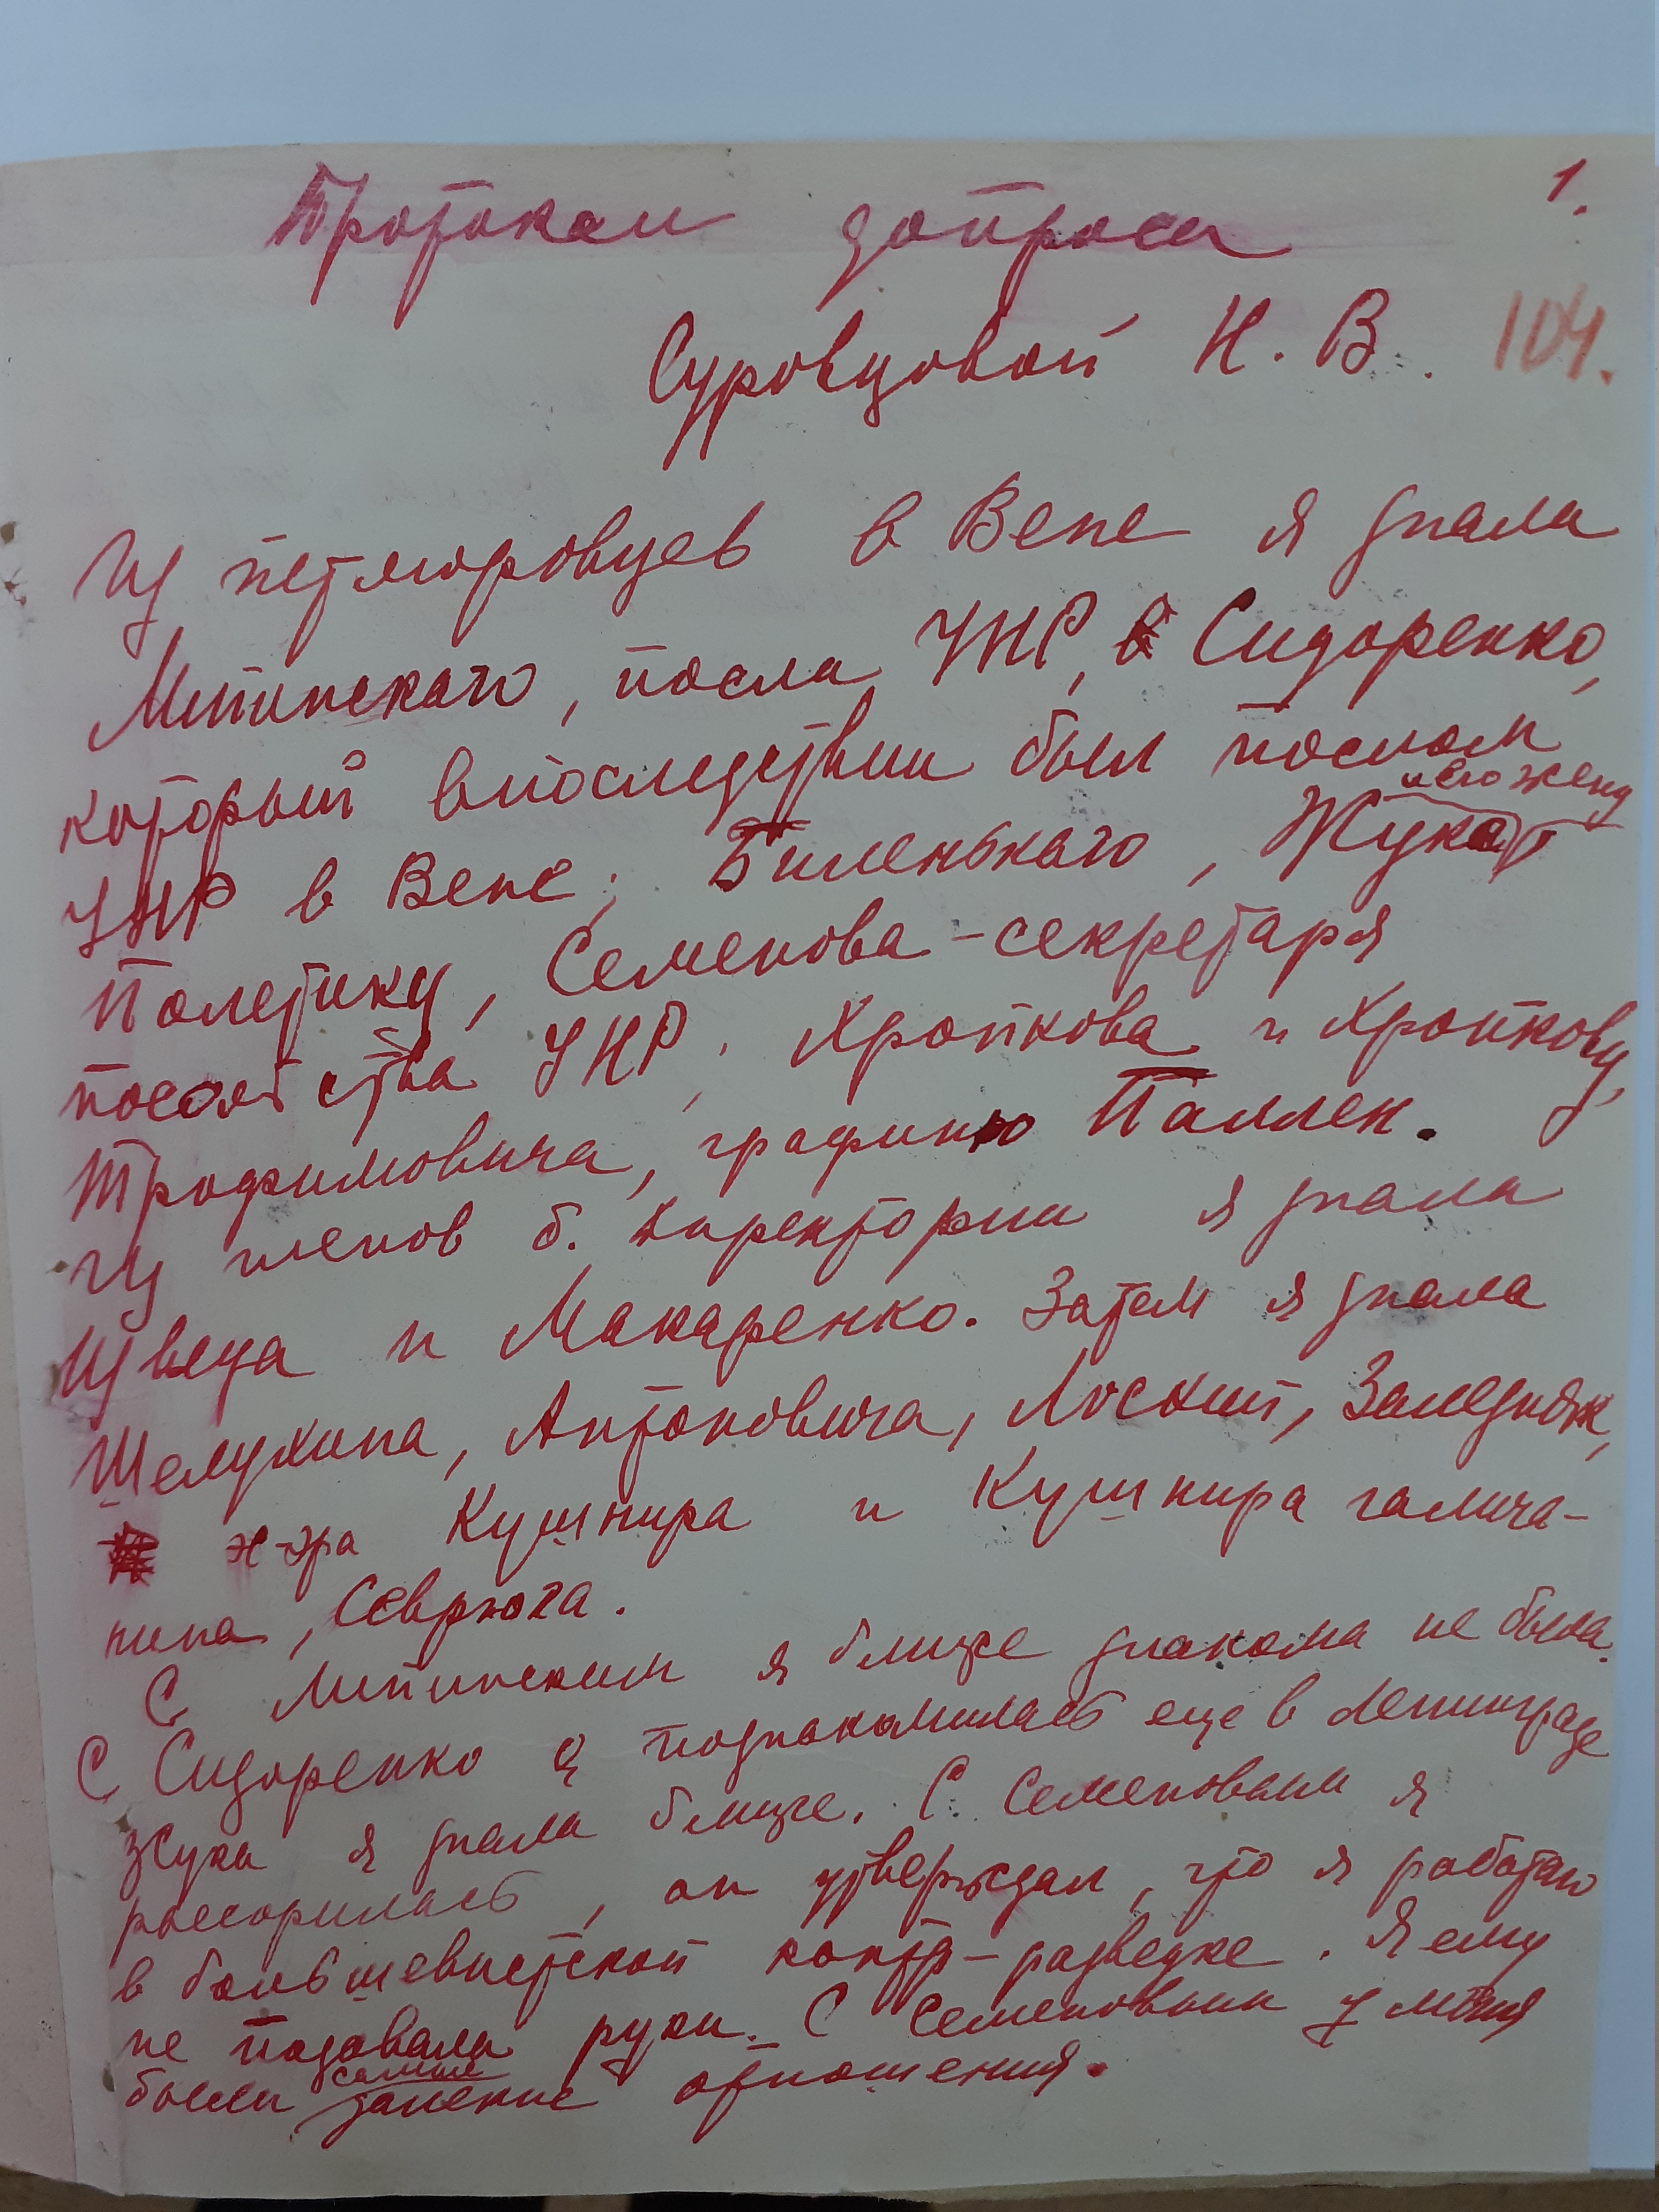 1.
Протокол допроса
Суровцовой Н. В.
104.
Из петлюровцев в Вене я знала
Липинскаго, посла УНР, Сидоренко,
который впоследствии был послом
УНР в Вене, Биленькаго, Жука и его жену
Полетику, Семенова - секретаря
посольства УНР, Хропкова и Хропкову,
Трофимовича, графиню Паллен.
Из членов б. директории я знала
Швеца и Макаренко. Затем я знала
Шелухина, Антоновича, Лоский, Зализняк,
эс-эра Кушнира и Кушнира галича-
нина, Севрюга.
С Липинским я ближе знакома не была.
С Сидоренко я познакомилась еще в Ленинграде
Жука я знала ближе. С Семеновым я
рассорилась, он утверждал, что я работаю
в большевистской контр-разведке. Я ему
не подавала руки. С Семеновым у меня
были самые отношения.